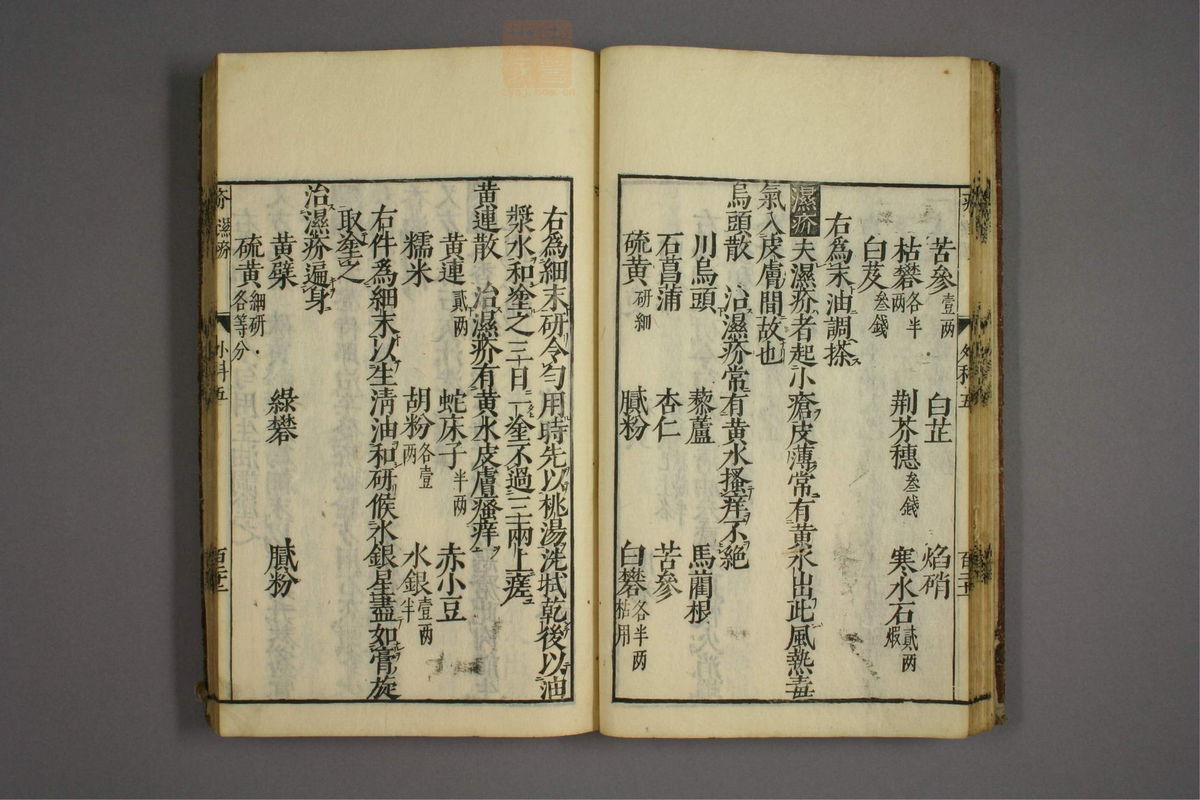 苦參壹两 白芷 焰硝
枯礬各半两 荆芥穗叁錢 寒水石貳两煆
白芨叁錢
右爲末油調搽
濕疥 夫濕疥者起小瘡皮薄常有黄水出此風熱毒
氣入皮膚間故也
烏頭散 治濕疥常有黄水搔痒不絶
川烏頭 藜蘆 馬藺根
石菖蒲 杏仁 苦參
硫黄研細 膩粉 白礬各半两枯用
右為細末研令勻用時先以桃湯洗拭乾後以油
漿水和塗之三日一塗不過三兩上瘥
黄連散 治濕疥有黄水皮膚瘙痒
黄連貳两 蛇床子半两 赤小豆
糯米 胡粉各壹两 水銀壹两半
右件為細末以生清油和研候水銀星盡如膏旋
取塗之
治濕疥遍身
黄蘗 綠礬 膩粉
硫黄細研各等分
疥 濕疥